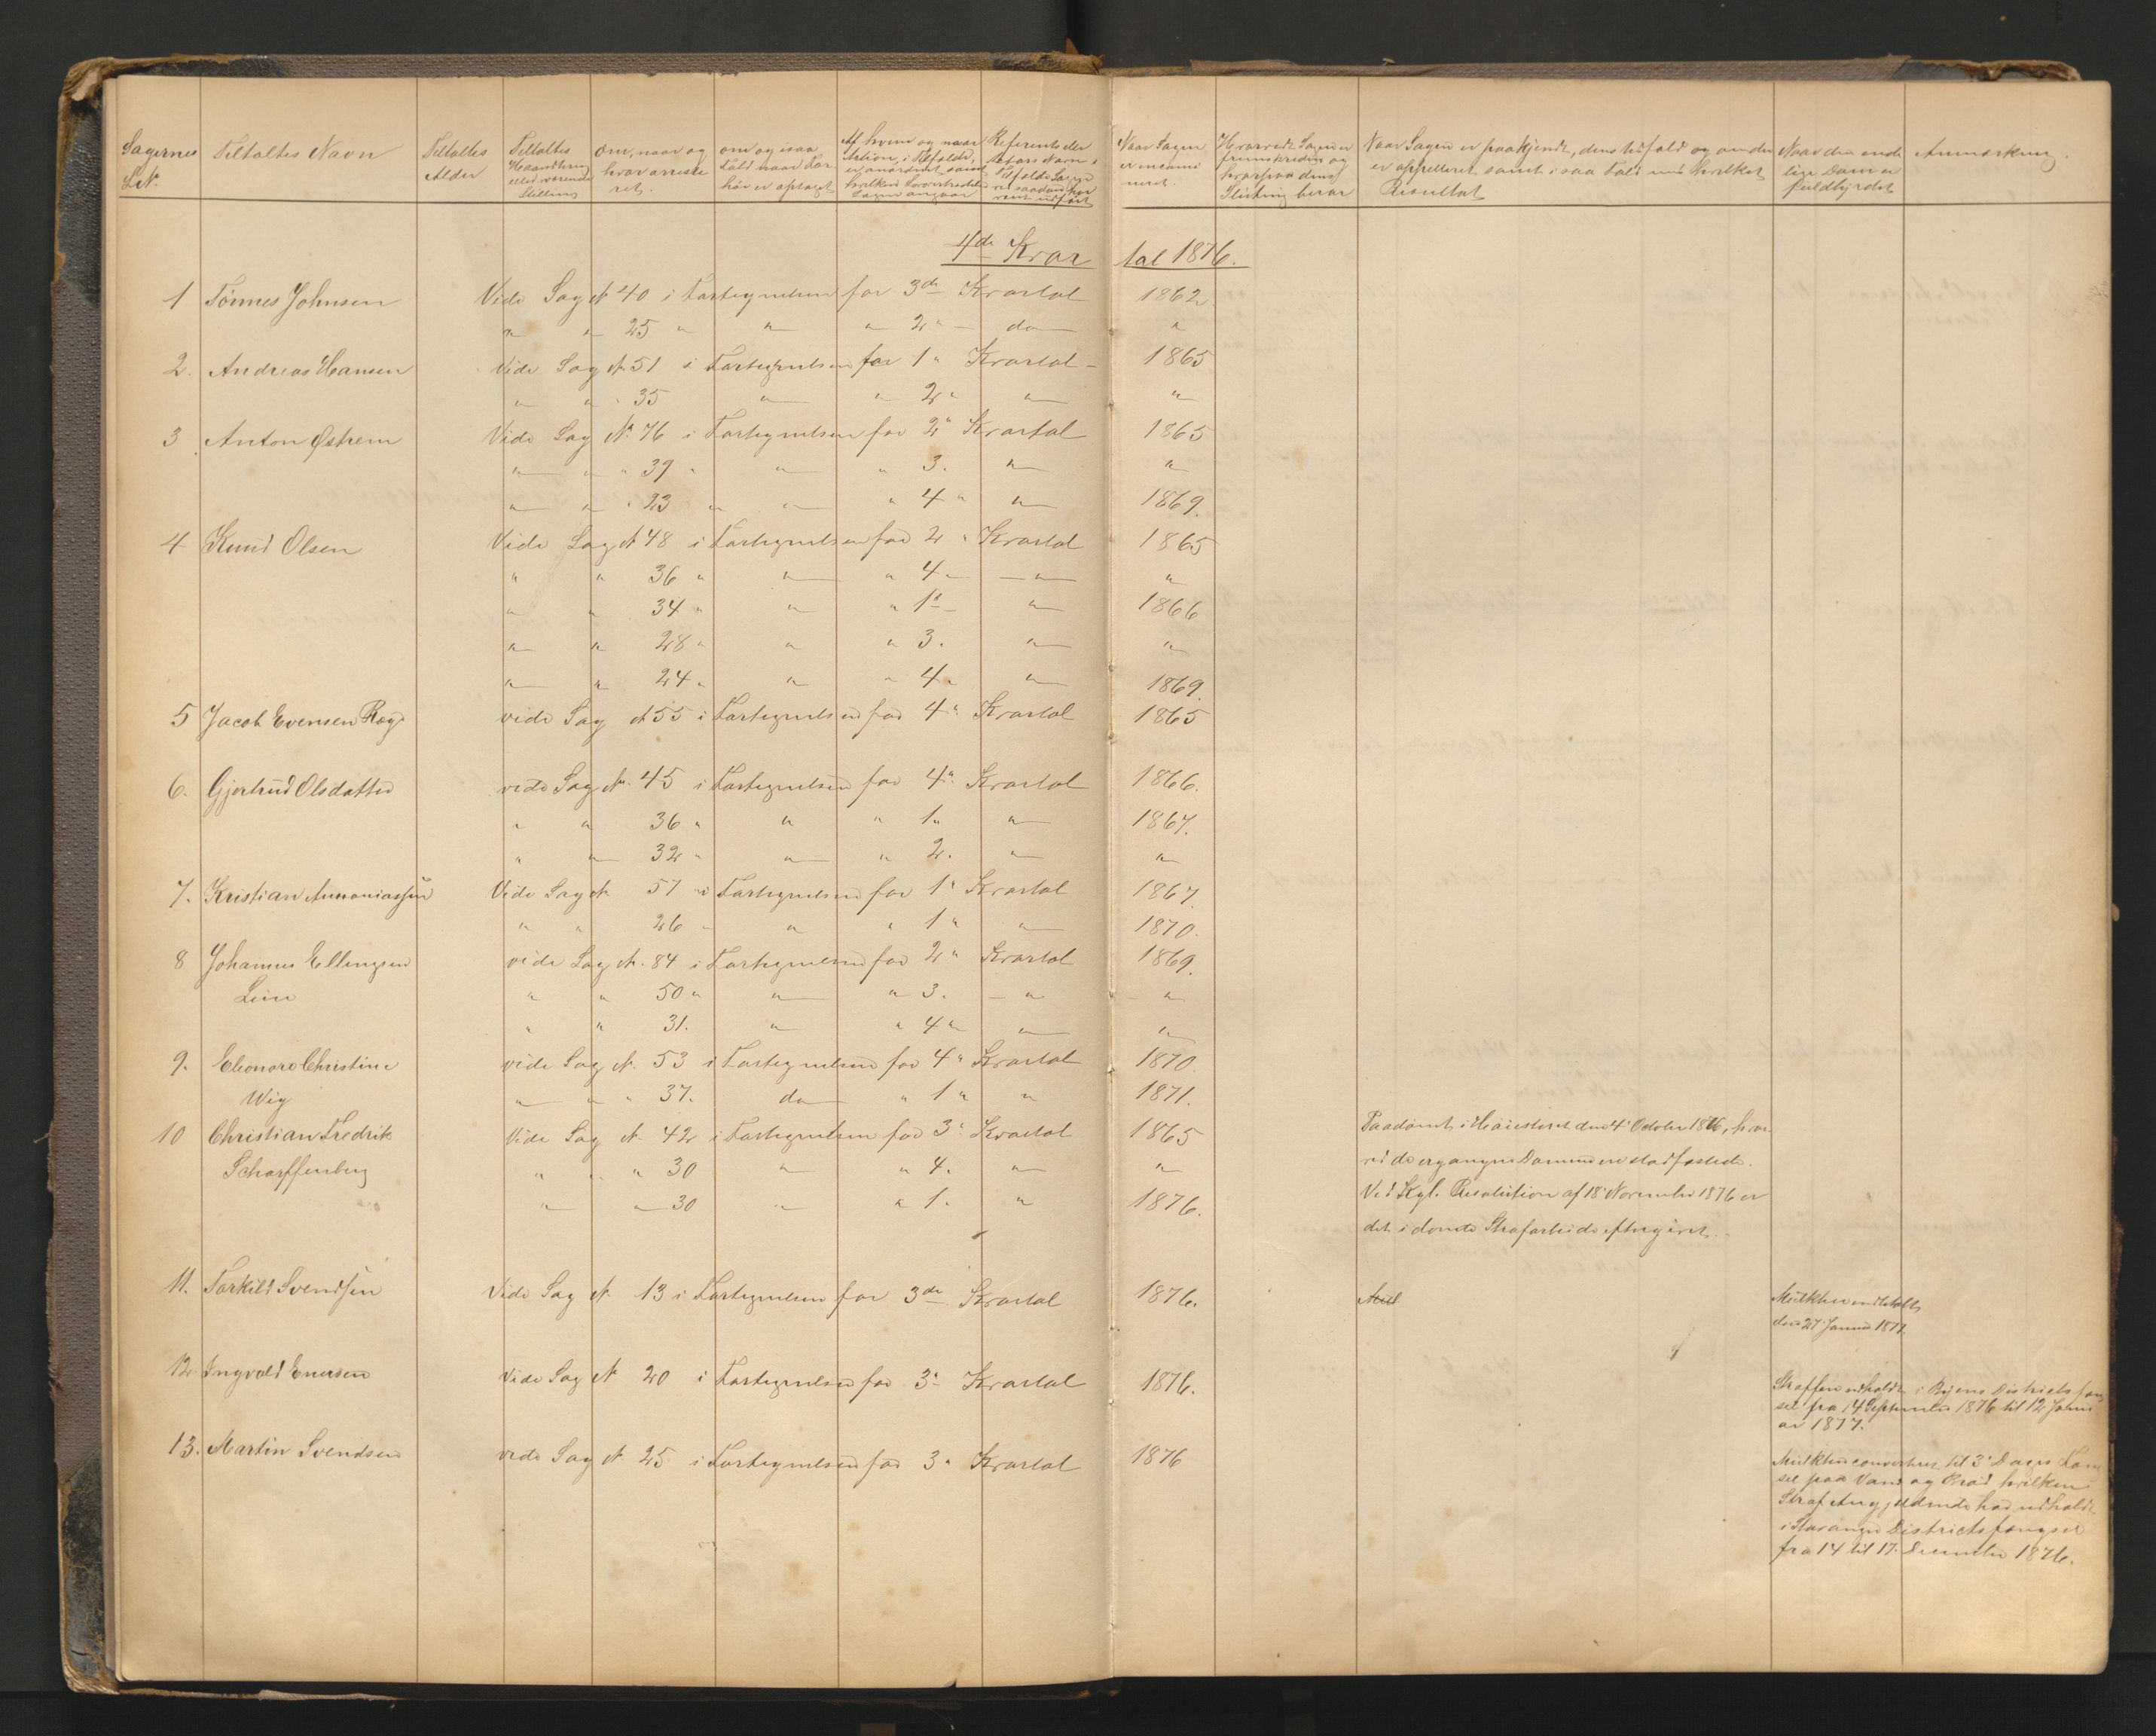 Sagernes
L.N.
Tiltaltes Navn
Tiltaltes
Alder
Tiltaltes
Haandtering
eller værende
Stilling
Om, naar og
hvor arreste
ret.
om og i saa
Fald naar For
hør er optaget
Af hvem og naar
Aktion, i Tilfælde,
er anordnet samt
hvilken Lovovertrædelse
Sagen angaar
Naar Sagen
er incami
neret.
Hvorvidt Sagen er
fremskreden og
hvorpaa dens
Slutning beror
Naar Sagen er paakjendt, dens Udfald og om den
er appelleret samt i saa Fald med hvilket
Resultat
Naar den ende
lige Dom er
fuldbyrdet
Anmærkning.
4de Kvartal 1876.
1 Tönnes Johnsen Vide Sag N 40 i Fortegnelsen for 3de Kvartal 1862
" " 25 " " " 2 " do "
2. Andreas Hansen Vide Sag N. 51 i Fortegnelsen for 1 " Kvartal 1865
" " " 35 " " 2 " " "
3 Anton Østrem Vide Sag N. 76 i Fortegnelsen for 2 " Kvartal 1865
" " " 39 " " " 3. " "
" " " 23 " " " 4 " " 1869.
4 Knud Olsen Vide Sag N 48 i Fortegnelsen for 2 " Kvartal 1865
" " 36 " " " 4 " " "
" " 34 " " " 1 " " 1866
" " 28 " " " 3. " "
" " 24 " " " 4 " " 1869.
5 Jacob Evensen Røg vide Sag N 55 i Fortegnelsen for 4 " Kvartal 1865
6. Gjertrud Olsdatter vide Sag N. 45 i Fortegnelsen for 4 " Kvartal 1866.
" " 36 " " " 1 " " 1867.
" " 32 " " " 2. " "
7. Kristian Annaniassen Vide Sag N 57 i Fortegnelsen for 1 " Kvartal 1867.
" " 26 " " " 1 " " 1870.
8 Johannes Ellingsen vide Sag N. 84 i Fortegnelsen for 2 " Kvartal 1869.
" " 50 " " " 3. " "
" " 31. " " 4 " " "
9. Eleonore Christine vide Sag N. 53 i Fortegnelsen for 4 " Kvartal 1870.
Wig " " " 37. do " 1 " " 1871.
10 Christian Fredrik Vide Sag N. 42 i Fortegnelsen for 3 " Kvartal 1865
Scharffenberg " " " 30 " " 4. " "
" " 30 " " 1. " 1876.
Paadömt i Høiesteret den 4' October 1876, hvor
ved de ergangne Domme ere stadfæstede.
Ved Kgl. Resolution af 18' November 1876 er
det idömte Strafarbeide eftergivet.
11. Torkild Svendsen Vide Sag N. 13 i Fortegnelsen for 3de Kvartal 1876.
Mulkten indbetalt
den 27' Januar 1877.
12. Ingvald Enersen Vide Sag N 20 i Fortegnelsen for 3 " Kvartal 1876.
Straffen udholdt i Byens Districtsfæng
sel fra 14 September 1876 til 12 Janu
ar 1877.
13. Martin Svendsen vide Sag N. 25 i Fortegnelsen for 3 " Kvartal 1876
Mulkten converteret til 3' Dages Fæng
sel paa Vand og Brød hvilken
Straf Angjældende har udholdt
i Stavanger Districtsfængsel
fra 14 til 17. December 1876.